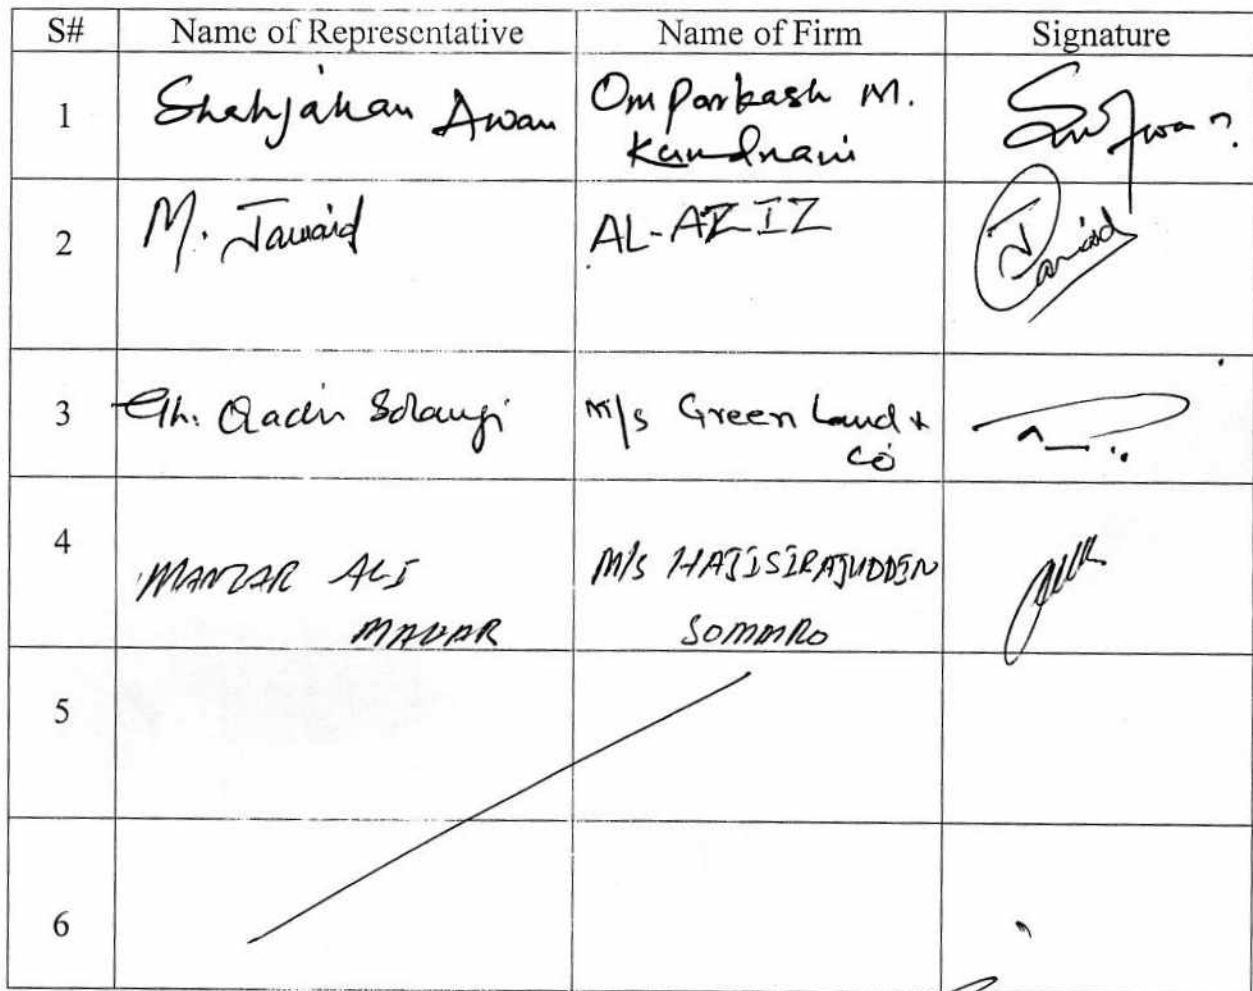 S# Name of Representative Name of Firm Signature
1 Shahjahan Awan Omparkash M.
Kundnani
2 M. Jawaid AL-AZIZ Jawaid
3 Gh. Qadir Solangi M/s Green Land &
Co
4
MANZAR ALI M/S HAJISIRAJUDDIN
SOMMRO
5
6